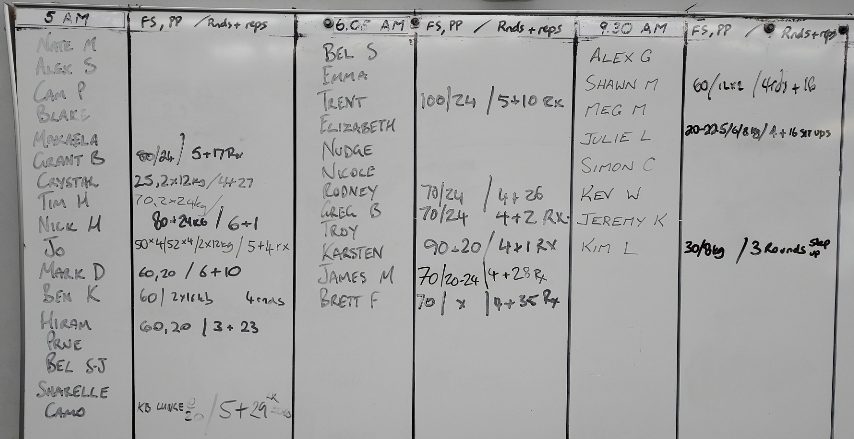 5 AM FS, PP / Rnds + reps
NATE M
ALEX S
CAM P
BLAKE
MAKAELA
GRANT B 80/24 / 5+17 Rx
CRYSTAL 25, 2x12kg / 4+27
TIM H 70, 2x24kg/
NICK H 80+24KG / 6+1
JO 50x4/52x4/2x12kg / 5+4 rx
MARK D 60,20 / 6+10
BEN K 60/2x16kg 4 rnds
HIRAM 60,20 / 3+23
PRUE
BEL S-J
SHARELLE
CAMO KB LUNGE / 5+29
6.05 AM FS, PP / Rnds + reps
BEL S
EMMA
TRENT 100/24 / 5+10 Rx
ELIZABETH
NUDGE
NICOLE
RODNEY 70/24 / 4+26
GREG B 70/24 4+2 RX
TROY
KARSTEN 90+20 / 4+1 RX
JAMES M 70/20-24 / 4+28 Rx
BRETT F 70/x / 4+35 Rx
9.30 AM FS, PP / Rnds + reps
ALEX G
SHAWN M 60/12x2 / 4rds + 16
MEG M
JULIE L 20-22.5/6/8kg / 4+16 sit ups
SIMON C
KEV W
JEREMY K
KIM L 30/8kg / 3 Rounds step up